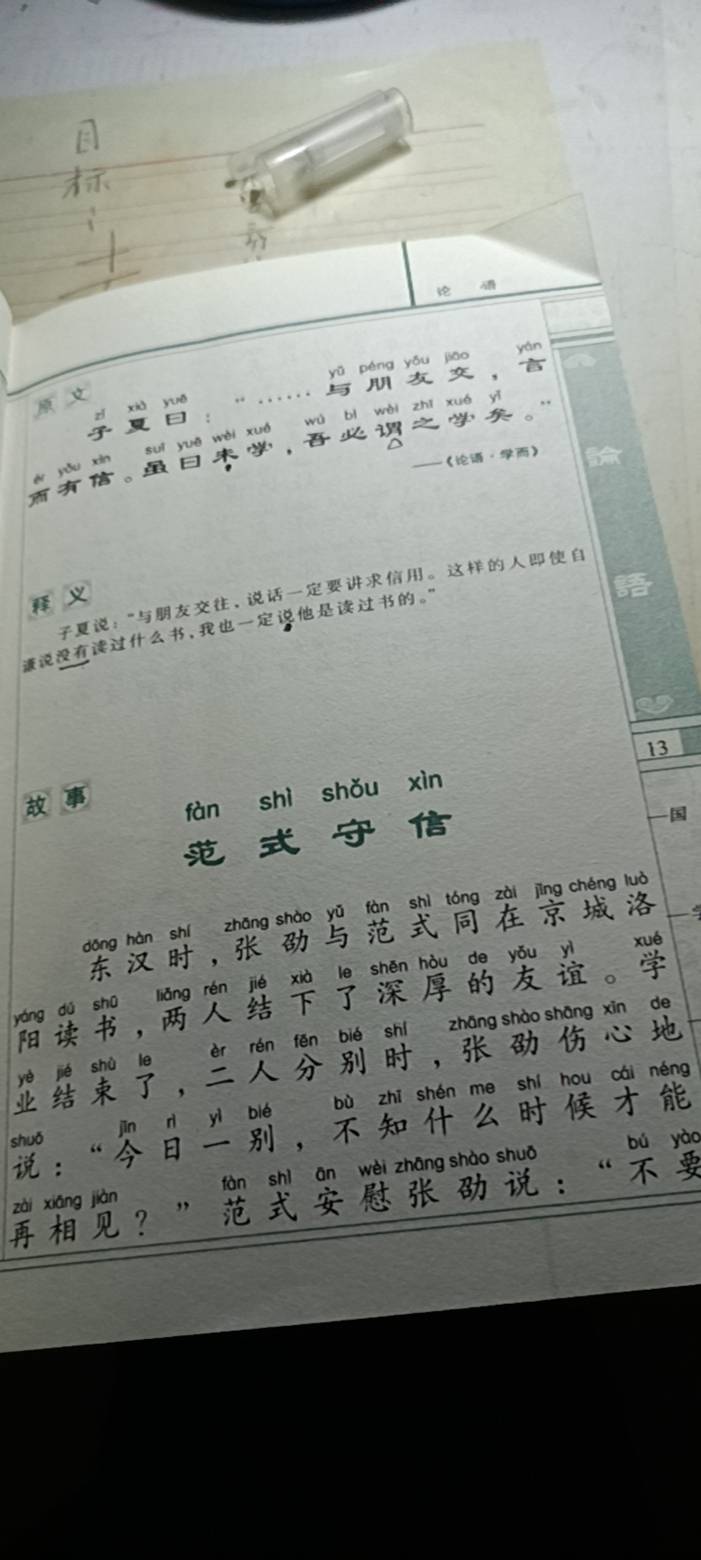 目
标
：
十
论 语
原 文
zǐ xià yuē yǔ péng yǒu jiāo yán
子夏曰：“……与朋友交，言
ér yǒu xìn suī yuē wèi xué wú bì wèi zhī xué yǐ
而有信。虽曰未学，吾必谓之学矣。”
——《论语·学而》
释 义
子夏说：“与朋友交往，说话一定要讲求信用。这样的人即使自
谦说没有读过什么书，我也一定说他是读过书的。”
論
語
13
国
故 事
fàn shì shǒu xìn
范式守信
dōng hàn shí zhāng shào yǔ fàn shì tóng zài jīng chéng luò
东汉时，张劭与范式同在京城洛
yáng dú shū liǎng rén jié xià le shēn hòu de yǒu yì xué
阳读书，两人结下了深厚的友谊。学
yè jié shù le èr rén fēn bié shí zhāng shào shāng xīn de
业结束了，二人分别时，张劭伤心地
shuō jīn rì yì bié bù zhī shén me shí hou cái néng
说：“今日一别，不知什么时候才能
zài xiāng jiàn fàn shì ān wèi zhāng shào shuō bú yào
再相见？”范式安慰张劭说：“不要